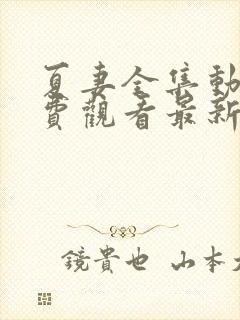 夏妻全集動
費觀看最新
鏡貴也 山本